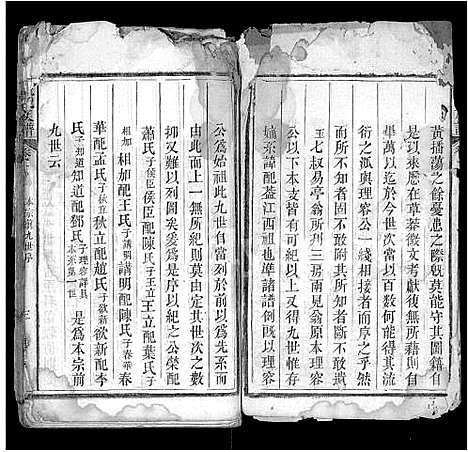 黃播蕩之餘憂患之際旣莫能守其圖籍自
是以來悉在草莽徵文考獻後無所藉則自
畢萬以迄於今世次當以百數何能得其流
衍之派與理容公一綫相接者而序之乎然
而所不知者固不敢附其所知者斷不敢遺
玉七叔易亭翁所刋三房南見翁原本理容
公以下本支皆有可紀以上又得九世帳
嫡系請配葢江西祖也準諸諸倒旣以理容
公為始祖此九世自當列於前以為先系
由此而上一無所紀則莫由定其世次之數
抑又難以列圖矣爰為是序以紀之公榮配
蕭氏子侯臣侯臣配陳氏子王五王立配葉氏子
相加相加配王氏子講明講明配陳氏子春華春
華配孟氏子秋立秋立配趙氏子欲新欲新配李
氏子知道知道配鄧氏子理容詳具本系第一世是為本宗前
九世云
本宗前九世序
三